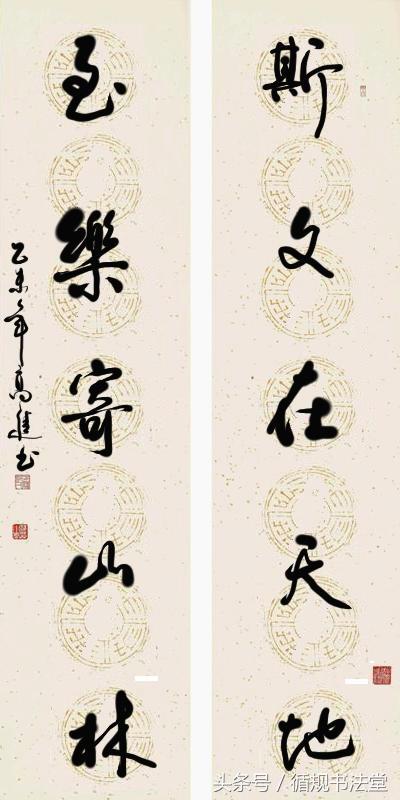 斯文在天地
至樂寄山林
乙未年高進书
头条号/循规书法堂